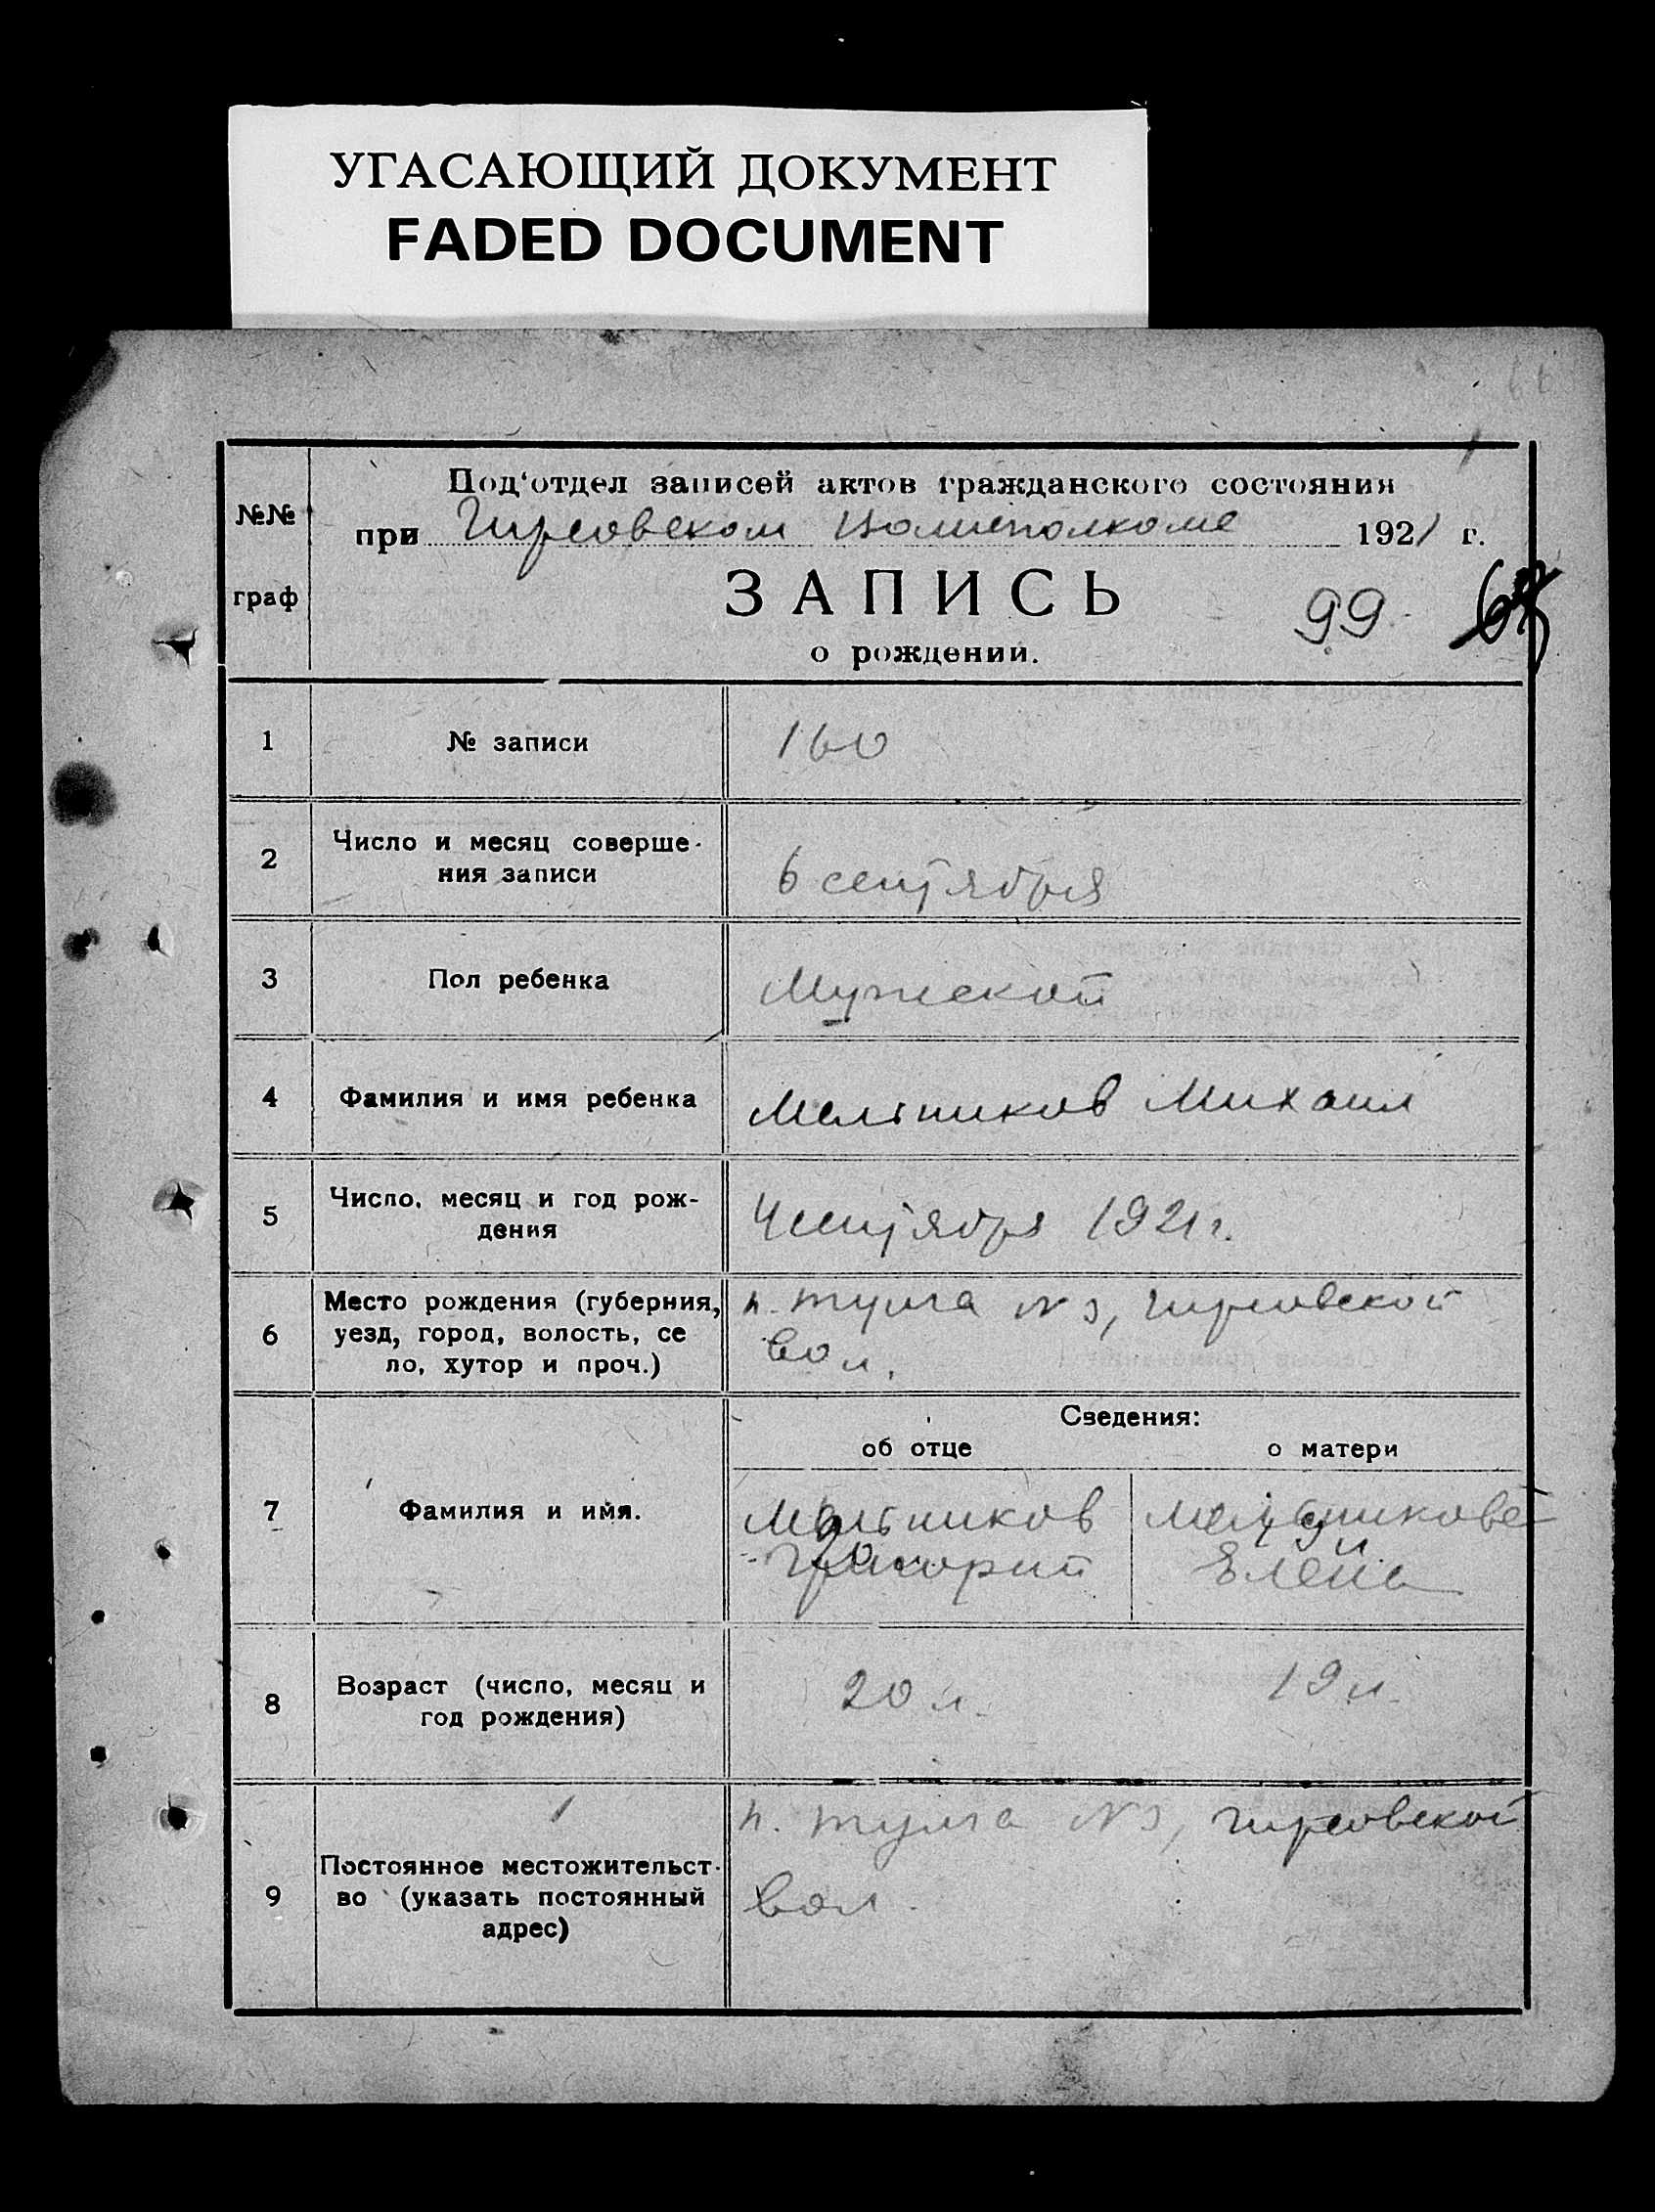 УГАСАЮЩИЙ ДОКУМЕНТ
FADED DOCUMENT
№№
граф
Под‘отдел записей актов гражданского состояния
при Гирсовском Волисполкоме 1921 г.
ЗАПИСЬ
99
о рождении.
1 № записи 160
2 Число и месяц соверше-
ния записи 6 сентября
3 Пол ребенка Мужской
4 Фамилия и имя ребенка Мельников Михаил
5 Число, месяц и год рож-
дения 4 сентября 1921 г.
6 Место рождения (губерния,
уезд, город, волость, се
ло, хутор и проч.)
п. Тулга № 3, Гирсовской
вол.
Сведения:
об отце о матери
7 Фамилия и имя.
Мельников
Григорий
Мельникова
Елена
8 Возраст (число, месяц и
год рождения)
20 л. 19 л.
9 Постоянное местожительст-
во (указать постоянный
адрес)
п. Тулга № 3, Гирсовской
вол.